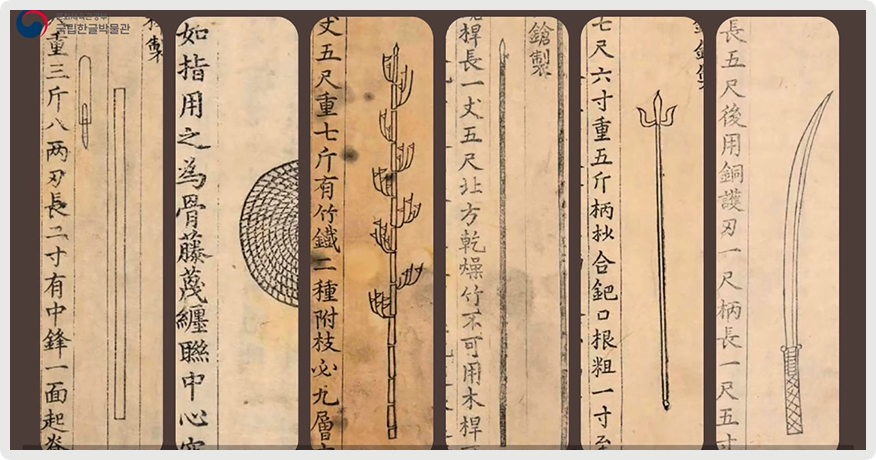 국립한글박물관
製
重三斤八两刃長二寸有中鋒一面起
如指用之為骨藤蔑纏聯中心
丈五尺重七斤有竹鐵二種附枝必九層
鎗製
桿長一丈五尺北方乾燥竹不可用木桿
七尺六寸重五斤柄杪合鈀口根粗一寸至
長五尺後用銅護刃一尺柄長一尺五寸